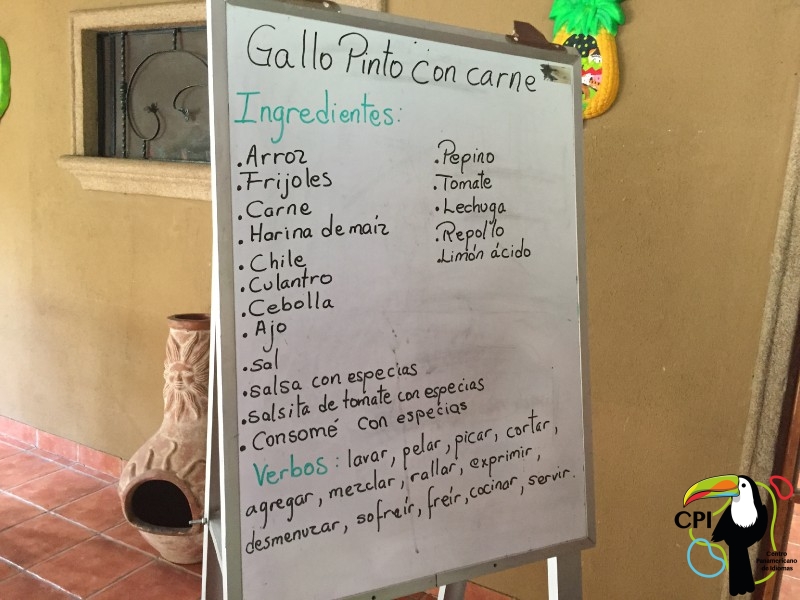 Gallo Pinto con carne
Ingredientes:
.Arroz
.Frijoles
.Carne
.Harina de maíz
.Chile
.Culantro
.Cebolla
.Ajo
.sal
.salsa con especias
.salsita de tomate con especias
.Consomé con especias
.Pepino
.Tomate
.Lechuga
.Repollo
.Limón ácido
Verbos: lavar, pelar, picar, cortar,
agregar, mezclar, rallar, exprimir,
desmenuzar, sofreír, freír, cocinar, servir.
CPI
Centro
Panamericano
de Idiomas